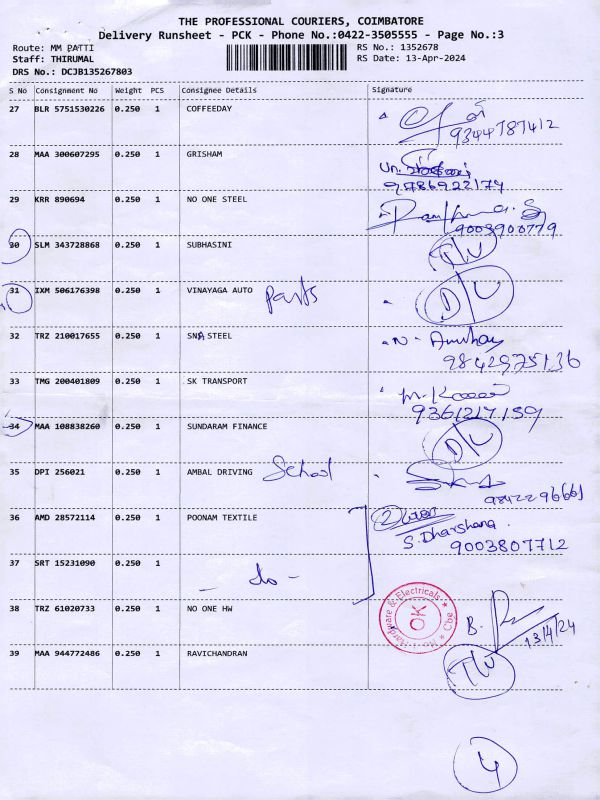 THE PROFESSIONAL COURIERS, COIMBATORE
Delivery Runsheet - PCK - Phone No.:0422-3505555 - Page No.:3
Route: MM PATTI
RS No.: 1352678
Staff: THIRUMAL
RS Date: 13-Apr-2024
DRS No.: DCJB135267803
S No Consignment No Weight PCS Consignee Details Signature
27 BLR 5751530226 0.250 1 COFFEEDAY
9344787412
28 MAA 300607295 0.250 1 GRISHAM
9786922174
29 KRR 890694 0.250 1 NO ONE STEEL
9003900779
30 SLM 343728868 0.250 1 SUBHASINI D/C
31 IXM 506176398 0.250 1 VINAYAGA AUTO Parts D/C
32 TRZ 210017655 0.250 1 SNA STEEL N.
9842975136
33 TMG 200401809 0.250 1 SK TRANSPORT M. Kumar
9361217159
34 MAA 108838260 0.250 1 SUNDARAM FINANCE D/C
35 DPI 256021 0.250 1 AMBAL DRIVING School
9842296661
36 AMD 28572114 0.250 1 POONAM TEXTILE 2
S. Dharshana.
9003807712
37 SRT 15231090 0.250 1
- do -
38 TRZ 61020733 0.250 1 NO ONE HW
No.1 Hardware & Electricals ★ Cbe ★
OK
B.
13/4/24
39 MAA 944772486 0.250 1 RAVICHANDRAN
4